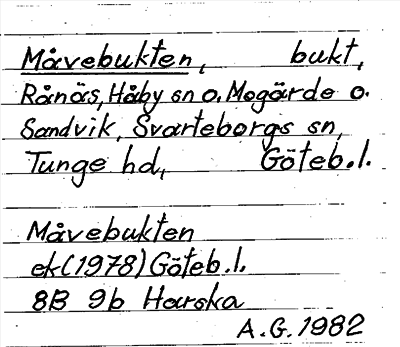 Måvebukten, bukt,
Rånäs, Håby sn o. Mogärde o.
Sandvik, Svarteborgs sn,
Tunge hd, Göteb.l.
Måvebukten
ek(1978) Göteb.l.
8B 9b Harska
A.G. 1982